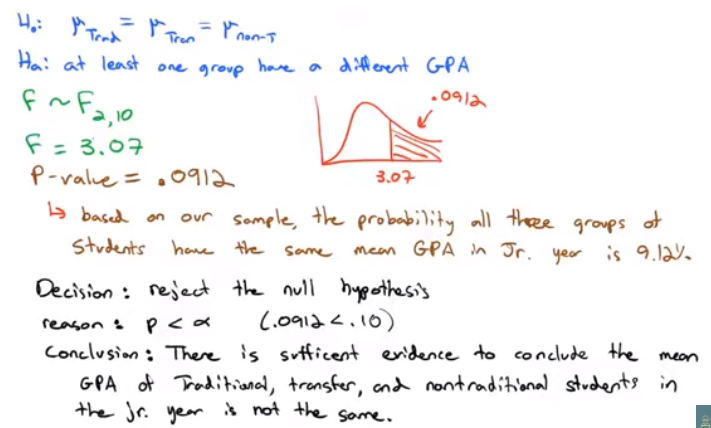 H₀: μTrad = μTran = μnon-T
Ha: at least one group have a different GPA
F ~ F2,10
F = 3.07
P-value = .0912
.0912
3.07
↳ based on our sample, the probability all three groups of
students have the same mean GPA in Jr. year is 9.12%.
Decision: reject the null hypothesis
reason: p < α (.0912 < .10)
Conclusion: There is sufficent evidence to conclude the mean
GPA of Traditional, transfer, and nontraditional students in
the jr. year is not the same.